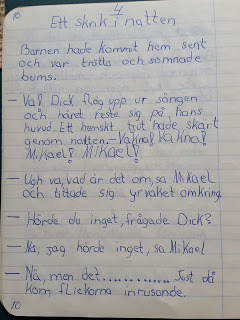 10
4
Ett skrik i natten
Barnen hade kommit hem sent
och var trötta och somnade
bums.
- Va! Dick flög upp ur sängen
och håret reste sig på, hans
huvud. Ett hemskt tjut hade skärt
genom natten. - Vakna! Vakna!
Mikael! Mikael!
- Ugh va, vad är det om, sa Mikael
och tittade sig yrvaket omkring.
- Hörde du inget, frågade Dick?
- Na, jag hörde inget, sa Mikael
- Nä, men det............. Just då
kom flickorna inrusande.
10